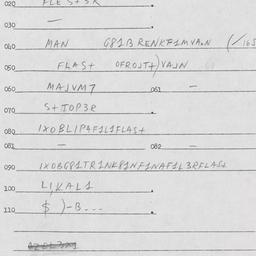 020 FLE S+3R .
030 — .
040 MAN G81B RENKF1MVA.N (/165
050 FLAS+ OFROJT+)VAJN
060 MAJVM7 061 —
070 S+TOP3R .
080 IXOBLIP4F1L1FLAS+
081 — 082 —
090 IXOBG81TR1NK81NF1NAF1L3RFLAS+
100 L1,KAL1 .
110 $ )-B--- .